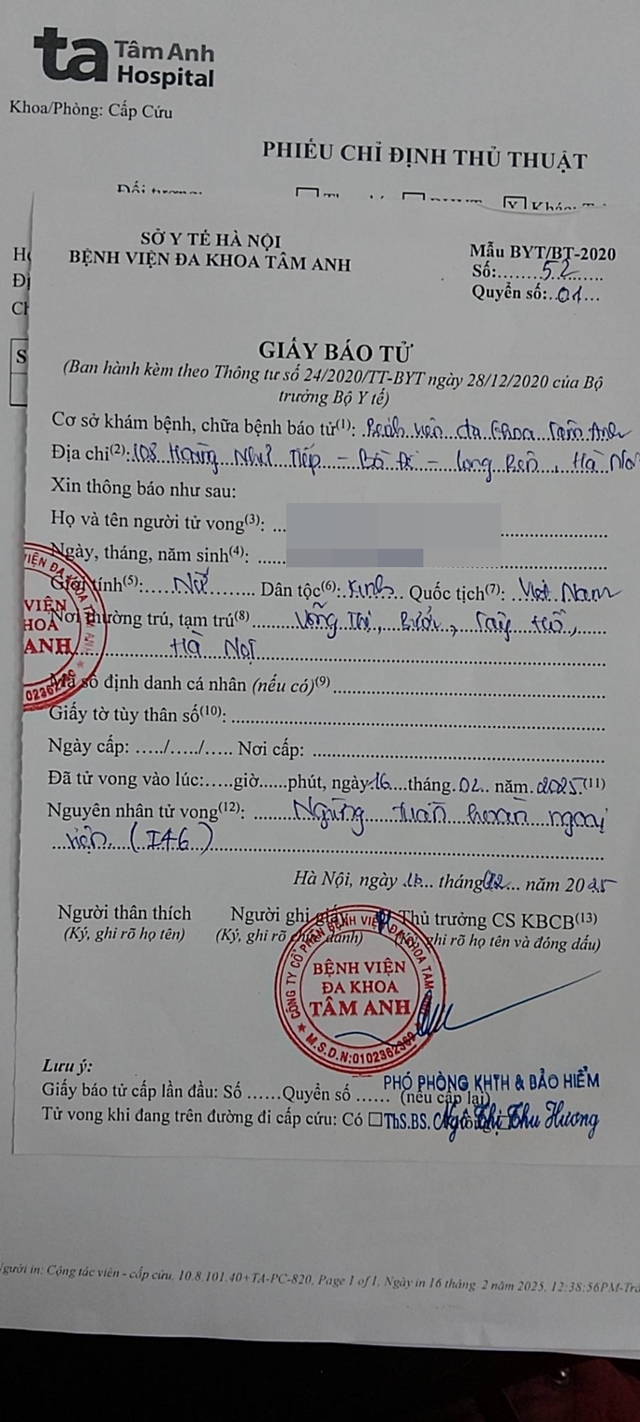 ta TâmAnh
Hospital
Khoa/Phòng: Cấp Cứu
PHIẾU CHỈ ĐỊNH THỦ THUẬT
SỞ Y TẾ HÀ NỘI
BỆNH VIỆN ĐA KHOA TÂM ANH
Mẫu BYT/BT-2020
Số:.......52..........
Quyển số:..01....
GIẤY BÁO TỬ
(Ban hành kèm theo Thông tư số 24/2020/TT-BYT ngày 28/12/2020 của Bộ
trưởng Bộ Y tế)
Cơ sở khám bệnh, chữa bệnh báo tử(1): Bệnh viện đa khoa Tâm Anh
Địa chỉ(2): 108 Hoàng Như Tiếp - Bồ Đề - Long Biên, Hà Nội
Xin thông báo như sau:
Họ và tên người tử vong(3): ...
Ngày, tháng, năm sinh(4): ......
Giới tính(5):..... Nữ ........ Dân tộc(6): Kinh.. Quốc tịch(7): Việt Nam
Nơi thường trú, tạm trú(8) ........ Võng Thị, Bưởi, Tây Hồ,
Hà Nội
Mã số định danh cá nhân (nếu có)(9)
Giấy tờ tùy thân số(10):
Ngày cấp: ...../...../..... Nơi cấp:
Đã tử vong vào lúc:.....giờ......phút, ngày 16 ....tháng.02.. năm.2025.(11)
Nguyên nhân tử vong(12): ........ Ngừng tuần hoàn ngoại
viện (I46)
Hà Nội, ngày 16... tháng 02... năm 2025
Người thân thích
(Ký, ghi rõ họ tên)
Người ghi giấy
(Ký, ghi rõ chức danh)
Thủ trưởng CS KBCB(13)
(Ký, ghi rõ họ tên và đóng dấu)
CÔNG TY CỔ PHẦN BỆNH VIỆN ĐA KHOA TÂM ANH
BỆNH VIỆN
ĐA KHOA
TÂM ANH
M.S.D.N:0102362369
VIỆN
KHOA
ANH
Lưu ý:
Giấy báo tử cấp lần đầu: Số ......Quyển số ...... (nếu cấp lại)
PHÓ PHÒNG KHTH & BẢO HIỂM
Tử vong khi đang trên đường đi cấp cứu: Có ☐
ThS.BS. Ngô Thị Thu Hương
Người in: Cộng tác viên - cấp cứu, 10.8.101.40+TA-PC-820, Page 1 of 1, Ngày in 16 tháng 2 năm 2025, 12:38:56PM-Tra